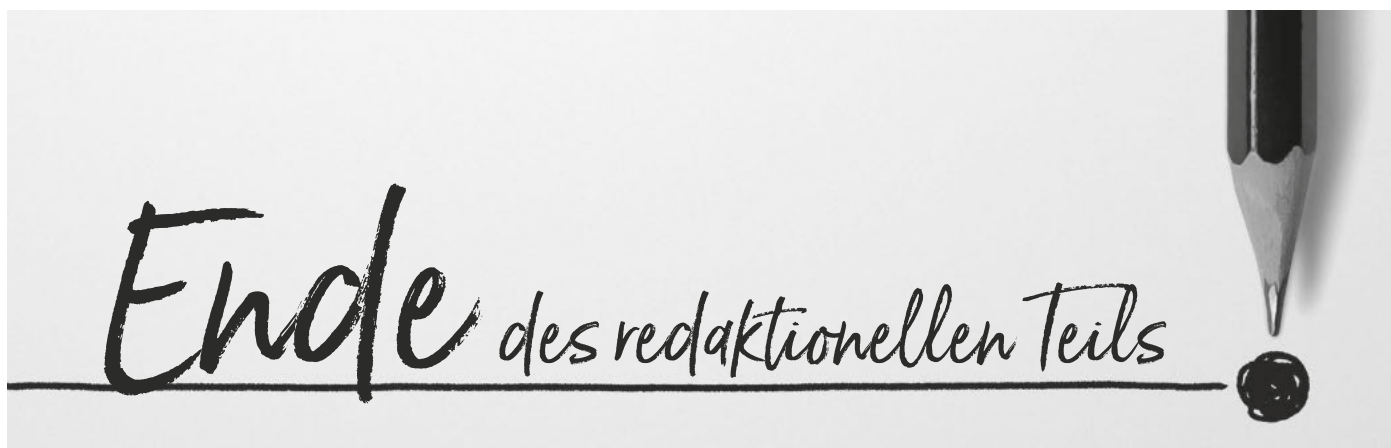 Ende des redaktionellen Teils